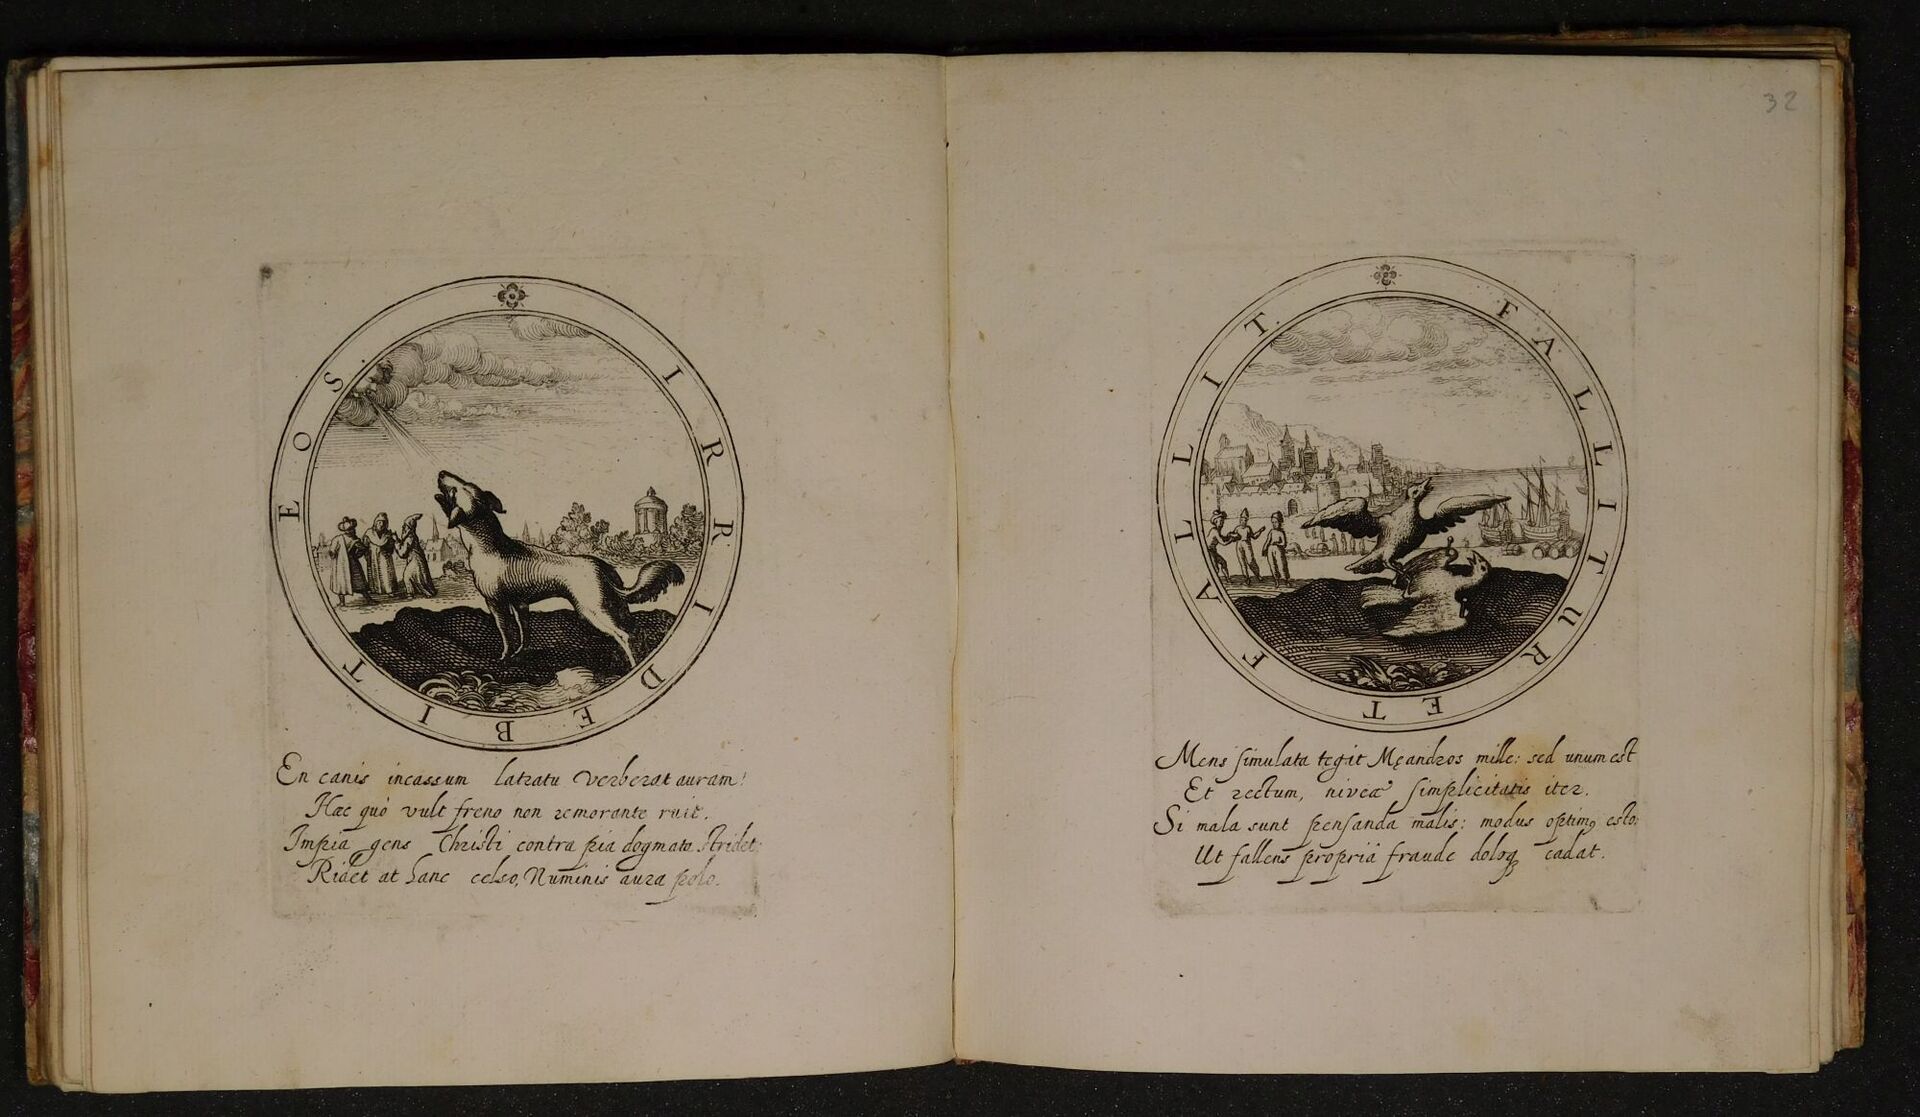 IRRIDEBIT EOS.
En canis incassum latratu verberat auram!
Hæc quò vult freno non remorante ruit.
Impia gens Christi contra pia dogmata stridet:
Ridet at hanc celso, Numinis aura polo.
32
FALLITUR ET FALLIT.
Mens simulata tegit Męandros mille: sed unum est
Et rectum, niveæ simplicitatis iter.
Si mala sunt pensanda malis: modus optimꝰ esto:
Ut fallens propriâ fraude doloqꝫ cadat.